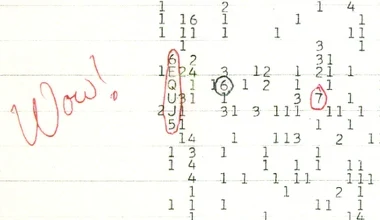 1 2 1 4
1 16 1 1
1 11 1 1 1
1 3 1
6 2 31
1 E 24 3 12 1 21 1
Q 1 16 1 2 1 1
Wow! U 31 1 3 7 1
2 J 1 31 3 111 11 1
5 1 1 1
14 1 1 113 2 1
3 1 1 1
1 4 1 1 1 11
1 4 1 1 1 111
1 2 1
1 1 1 1 1 1
1 4